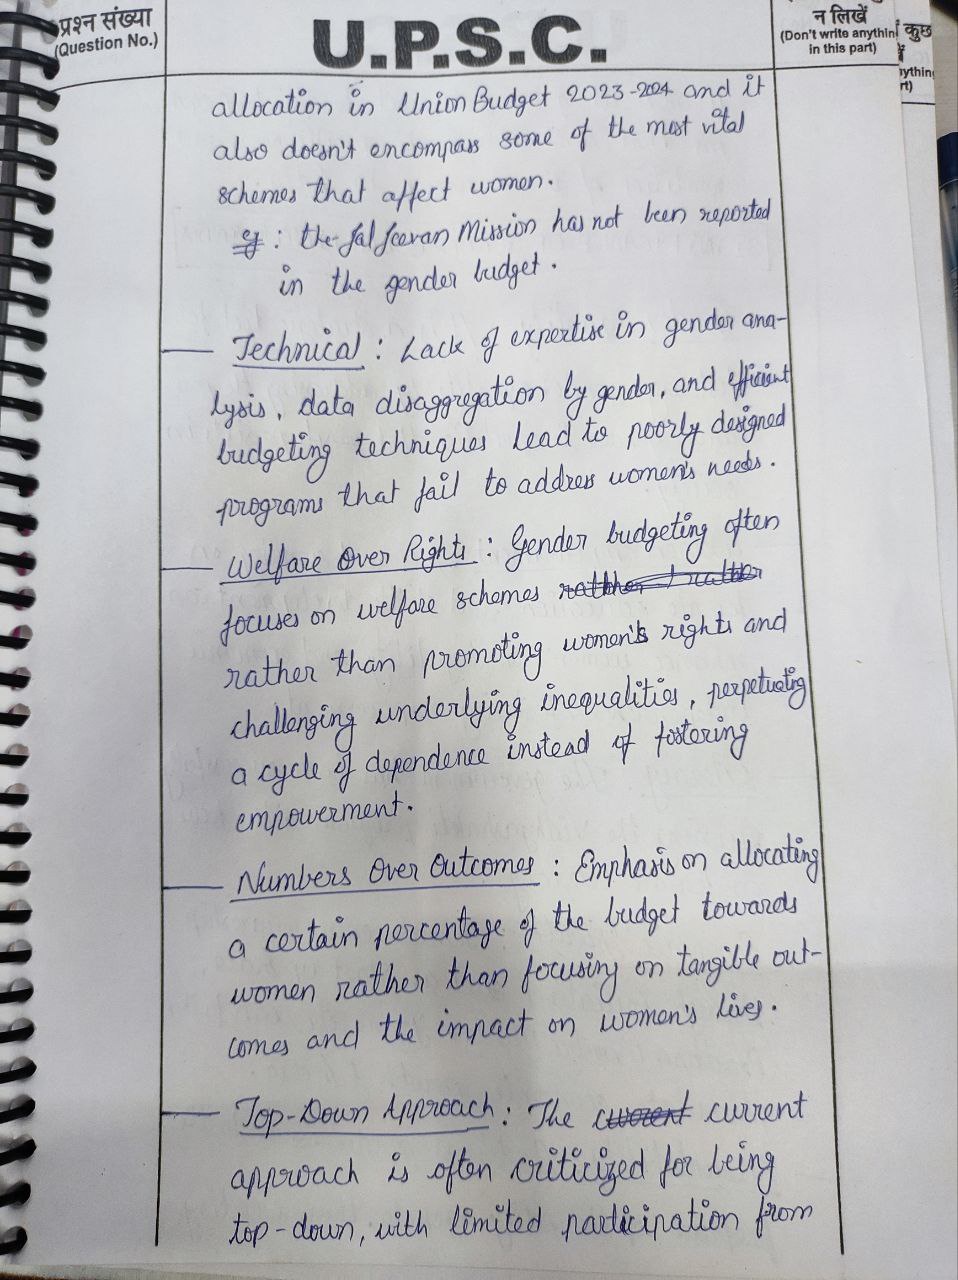 प्रश्न संख्या
(Question No.)
U.P.S.C.
न लिखें
(Don't write anythin
in this part)
कुछ
ythin
rt)
allocation in Union Budget 2023-2024 and it
also doesn't encompass some of the most vital
schemes that affect women.
eg : the Jal Jeevan Mission has not been reported
in the gender budget.
Technical : Lack of expertise in gender ana-
lysis, data disaggregation by gender, and efficient
budgeting techniques lead to poorly designed
programs that fail to address women's needs.
Welfare Over Rights : Gender budgeting often
focuses on welfare schemes
rather than promoting women's rights and
challenging underlying inequalities, perpetuating
a cycle of dependence instead of fostering
empowerment.
Numbers Over Outcomes : Emphasis on allocating
a certain percentage of the budget towards
women rather than focusing on tangible out-
comes and the impact on women's lives.
Top-Down Approach : The current
approach is often criticized for being
top-down, with limited participation from